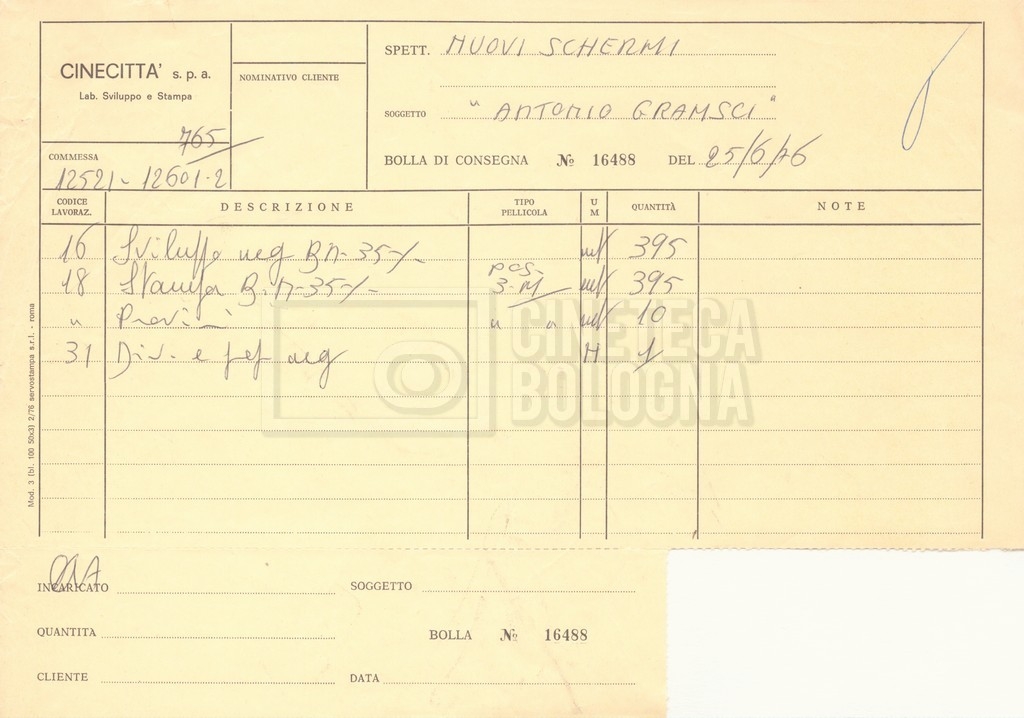 CINECITTÀ' s.p.a.
Lab. Sviluppo e Stampa
765
COMMESSA
12521-12601-2
NOMINATIVO CLIENTE
SPETT. NUOVI SCHERMI
SOGGETTO "ANTONIO GRAMSCI"
BOLLA DI CONSEGNA № 16488 DEL 25/6/76
CODICE LAVORAZ. DESCRIZIONE TIPO PELLICOLA U M QUANTITÀ NOTE
16 Sviluppo neg BN-35-/- mt 395
18 Stampa B.N-35-/- pos. 3-M mt 395
" Provini " " mt 10
31 Div. e neg H 1
Mod. 3 (bl. 100 50x3) 2/76 servostampa s.r.l. - roma
CINETECA
BOLOGNA
INCARICATO SOGGETTO
QUANTITÀ BOLLA № 16488
CLIENTE DATA